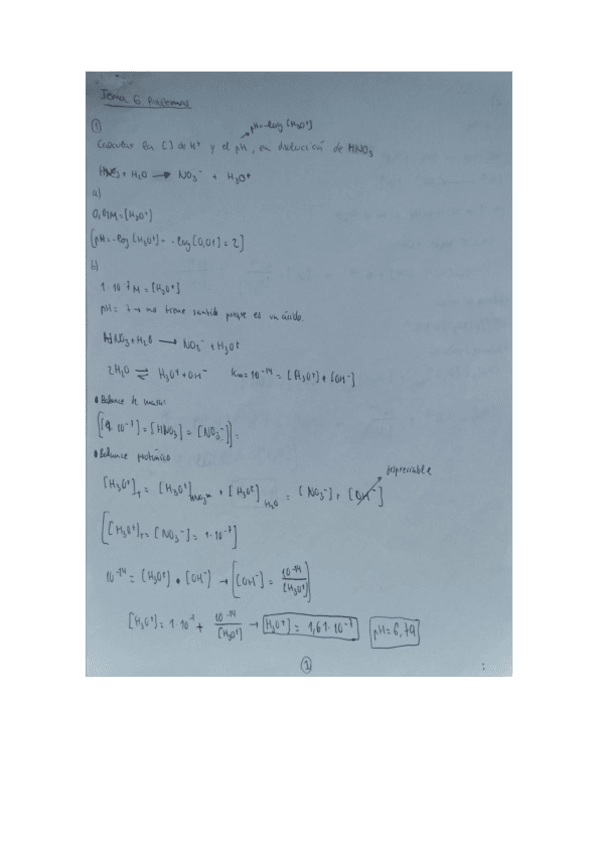 Tema 6 Problemas
①
pH=-log [H3O+]
Calcular la [ ] de H+ y el pH, en disolución de HNO3
HNO3 + H2O → NO3- + H3O+
a)
0,01M = [H3O+]
[pH = -log [H3O+] = -log [0,01] = 2]
b)
1·10-7 M = [H3O+]
pH = 7 → no tiene sentido porque es un ácido.
HNO3 + H2O → NO3- + H3O+
2H2O ⇌ H3O+ + OH- Kw = 10-14 = [H3O+] · [OH-]
• Balance de masas:
[[1·10-7] = [HNO3] = [NO3-]] =
• Balance protónico
despreciable
[H3O+]T = [H3O+]HNO3 + [H3O+]H2O = [NO3-] + [OH-]
[[H3O+]T = [NO3-] = 1·10-7]
10-14 = [H3O+] · [OH-] → [[OH-] = 10-14 / [H3O+]]
[H3O+] = 1·10-7 + 10-14 / [H3O+] → [H3O+] = 1,61·10-7 pH = 6,79
①